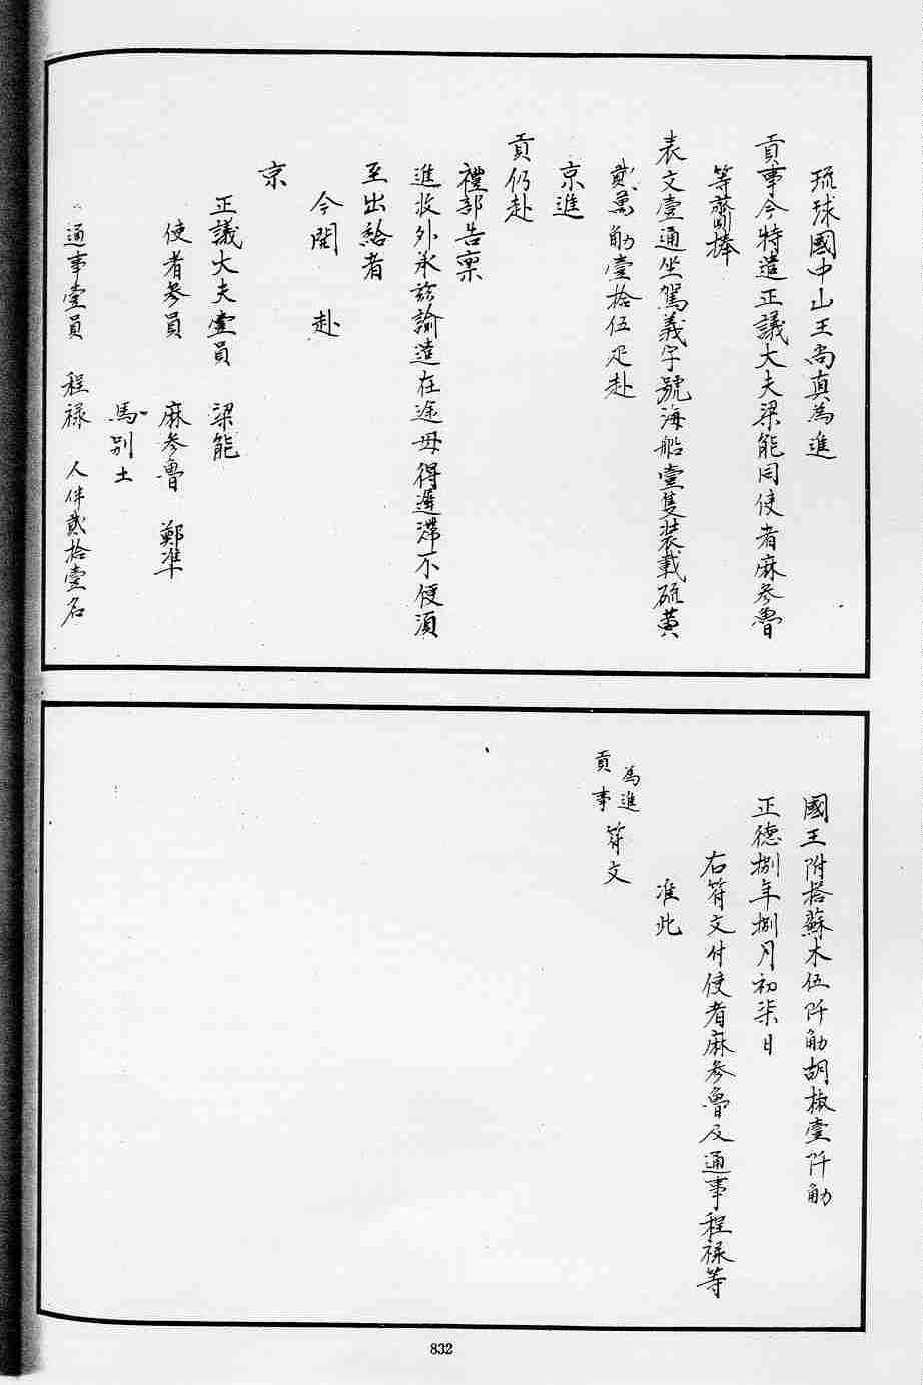 琉球國中山王尚真為進
貢事今特遣正議大夫梁能同使者麻參魯
等齎捧
表文壹通坐駕義字號海船壹隻裝載硫黃
貳萬觔壹拾伍疋赴
京進
貢仍赴
禮部告稟
進收外承玆諭遣在途毋得遲滯不便須
至出給者
今開 赴
京
正議大夫壹員 梁能
使者參員 麻參魯 鄭準
馬別土
通事壹員 程祿 人伴貳拾壹名
國王附搭蘇木伍阡觔胡椒壹阡觔
正德捌年捌月初柒日
右符文付使者麻參魯及通事程祿等
准此
為進
貢事符文
832